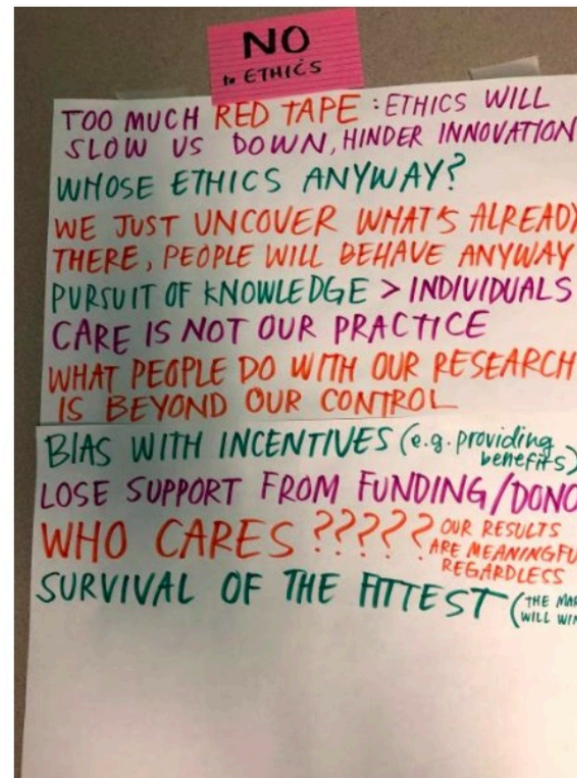 NO
to ETHICS
TOO MUCH RED TAPE : ETHICS WILL
SLOW US DOWN, HINDER INNOVATION
WHOSE ETHICS ANYWAY?
WE JUST UNCOVER WHAT'S ALREADY
THERE, PEOPLE WILL BEHAVE ANYWAY
PURSUIT OF KNOWLEDGE > INDIVIDUALS
CARE IS NOT OUR PRACTICE
WHAT PEOPLE DO WITH OUR RESEARCH
IS BEYOND OUR CONTROL
BIAS WITH INCENTIVES (e.g. providing
benefits)
LOSE SUPPORT FROM FUNDING/
WHO CARES ????? OUR RESULTS
ARE
REGARDLESS
SURVIVAL OF THE FITTEST (THE
WILL